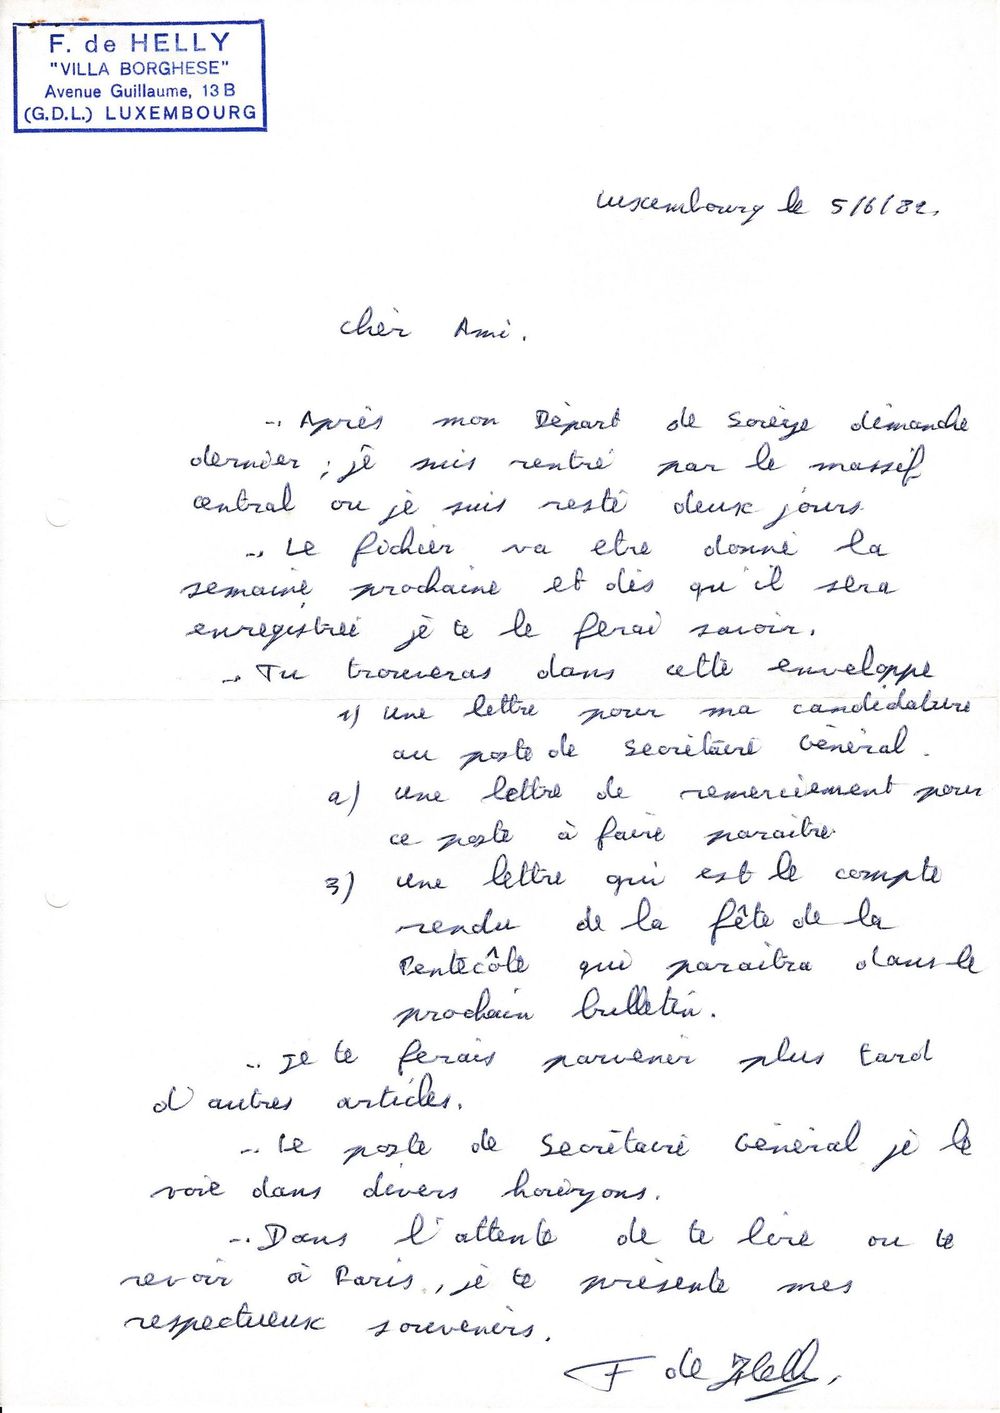 F. de HELLY
"VILLA BORGHESE"
Avenue Guillaume, 13 B
(G.D.L.) LUXEMBOURG
Luxembourg le 5/6/82.
Cher Ami.
-. Après mon Départ de Sorèze dimanche
dernier ; je suis rentré par le massif
central ou je suis resté deux jours
-. Le fichier va etre donné la
semaine prochaine et dès qu'il sera
enregistreé je te le ferai savoir.
-. Tu trouveras dans cette enveloppe
1) une lettre pour ma candidature
au poste de Secrétaire Général.
2) une lettre de remerciement pour
ce poste à faire paraitre
3) une lettre qui est le compte
rendu de la fête de la
Pentecôte qui paraitra dans le
prochain bulletin.
-. Je te ferais parvenir plus tard
d'autres articles.
-. Le poste de Secrétaire Général je le
voie dans divers horizons.
-. Dans l'attente de te lire ou te
revoir à Paris, je te présente mes
respectueux souvenirs.
F de Helly.